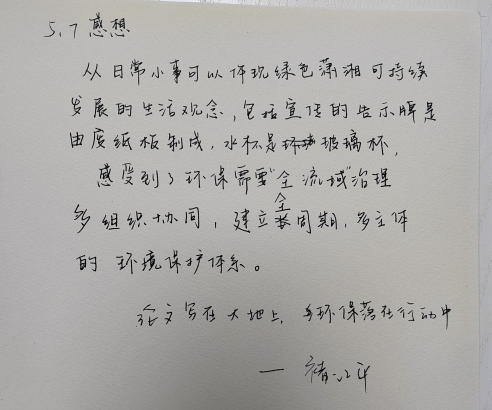 5.7 感想
从日常小事可以体现绿色潇湘可持续
发展的生活观念，包括宣传的告示牌是
由废纸板制成，水杯是玻璃杯，
感受到了环保需要“全流域”治理
多组织协同，建立全周期，多主体
的环境保护体系。
论文写在大地上，环保落在行动中
——